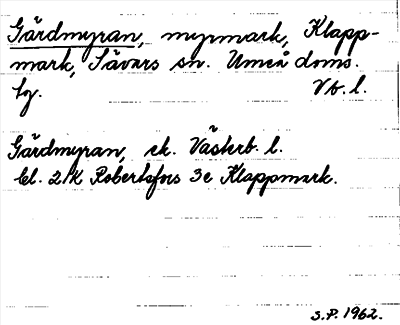 Gärdmyran, myrmark, Klapp-
mark, Sävars sn. Umeå doms.
tg. Vb. l.
Gärdmyran, ek. Västerb. l.
bl. 21K Robertsfors 3e Klappmark.
S.P. 1962.